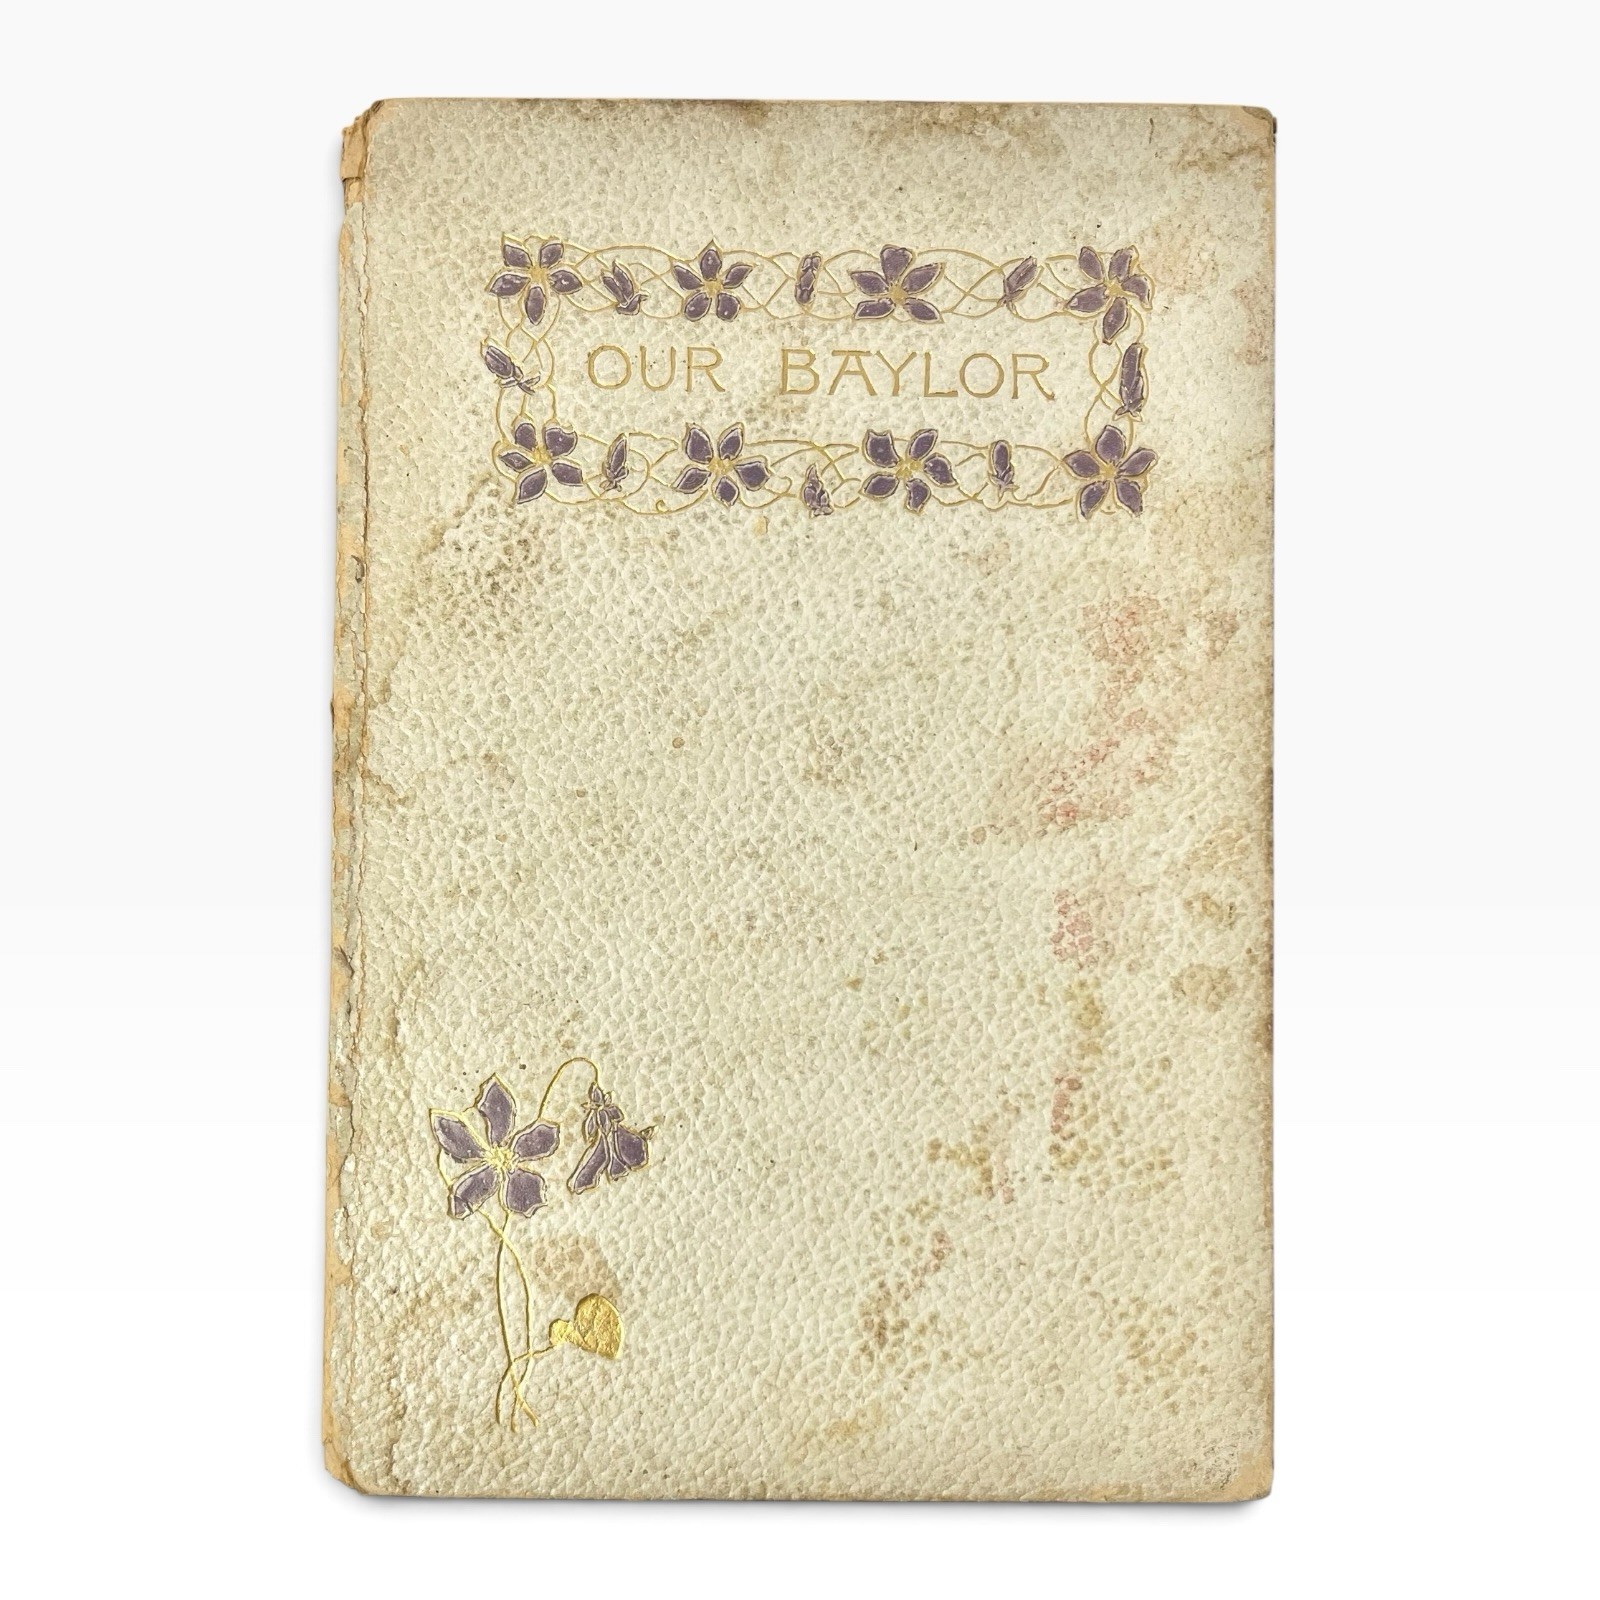 OUR BAYLOR